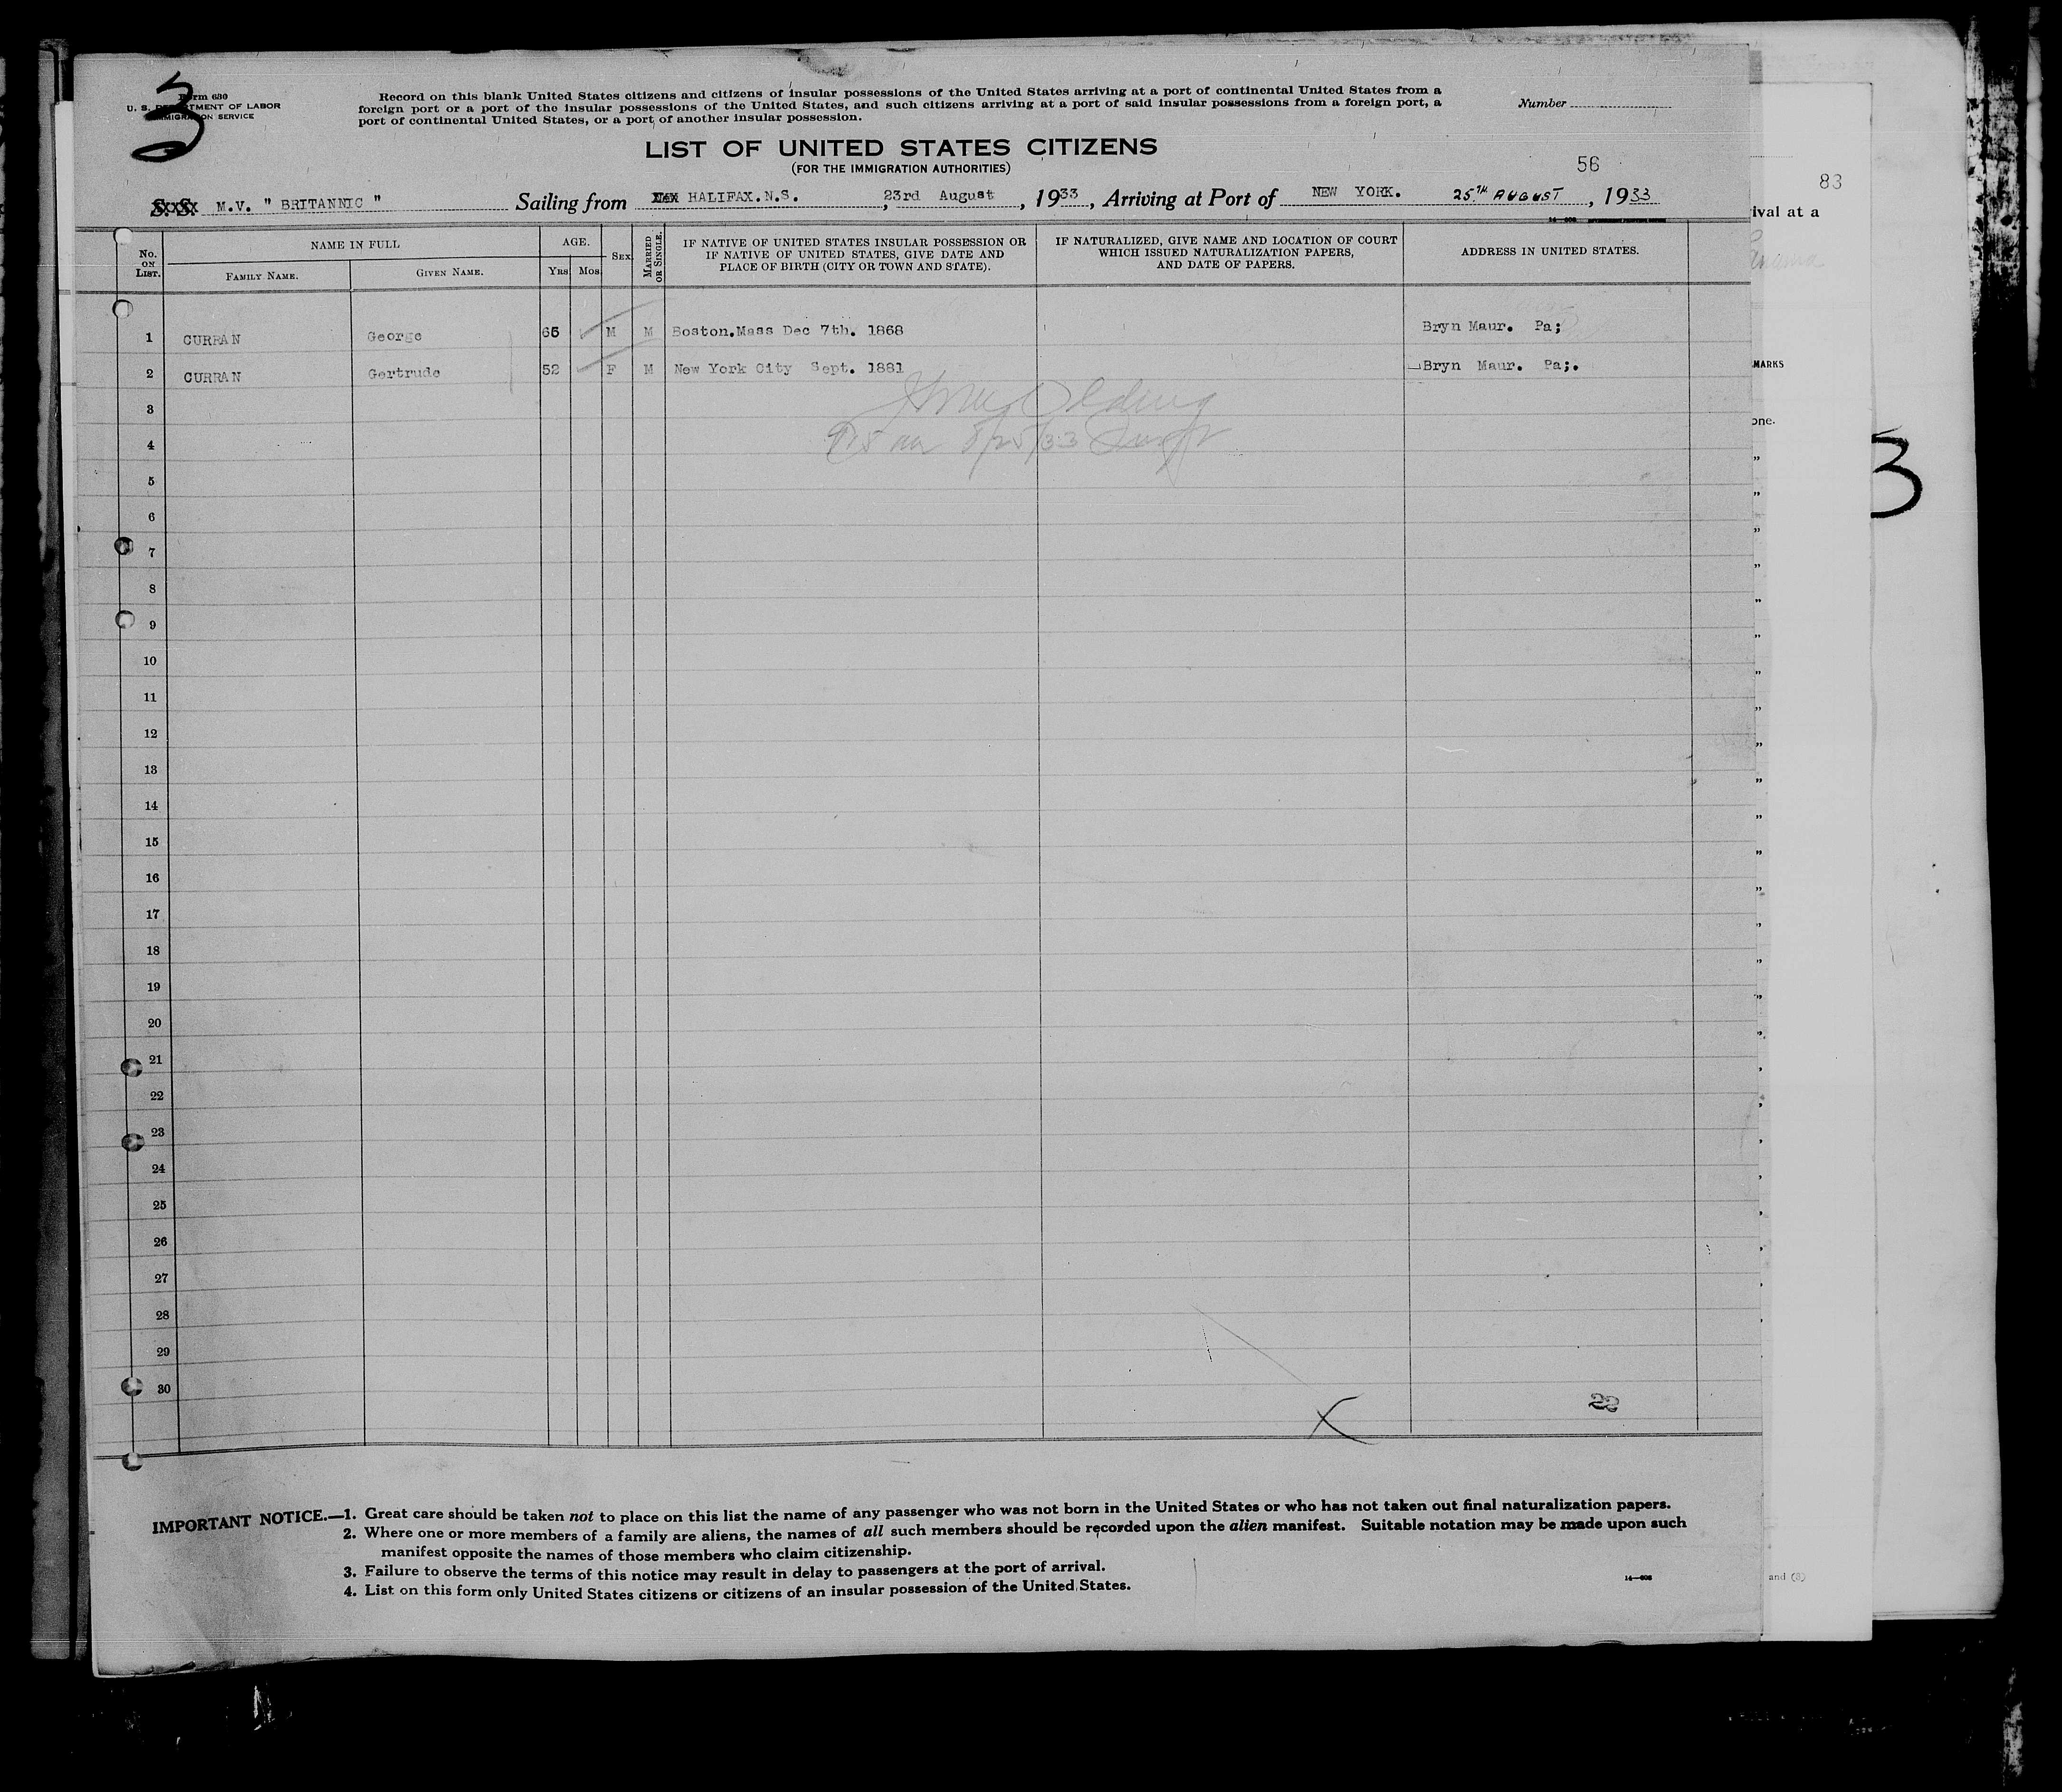 3
Form 630
U. S. DEPARTMENT OF LABOR
IMMIGRATION SERVICE
Record on this blank United States citizens and citizens of insular possessions of the United States arriving at a port of continental United States from a
foreign port or a port of the insular possessions of the United States, and such citizens arriving at a port of said insular possessions from a foreign port, a
port of continental United States, or a port of another insular possession.
Number
LIST OF UNITED STATES CITIZENS
(FOR THE IMMIGRATION AUTHORITIES)
56
83
S. S. M.V. " BRITANNIC " Sailing from HALIFAX.N.S. , 23rd August , 1933 , Arriving at Port of NEW YORK. 25TH AUGUST , 1933
ival at a
14-608
No. ON LIST. NAME IN FULL AGE. SEX MARRIED OR SINGLE. IF NATIVE OF UNITED STATES INSULAR POSSESSION OR IF NATIVE OF UNITED STATES, GIVE DATE AND PLACE OF BIRTH (CITY OR TOWN AND STATE). IF NATURALIZED, GIVE NAME AND LOCATION OF COURT WHICH ISSUED NATURALIZATION PAPERS, AND DATE OF PAPERS. ADDRESS IN UNITED STATES.
FAMILY NAME. GIVEN NAME. Yrs Mos
1 CURRAN George 65 M M Boston.Mass Dec 7th. 1868 Bryn Maur. Pa;
2 CURRAN Gertrude 52 F M New York City Sept. 1881 Bryn Maur. Pa;.
MARKS
3
one.
4 8/25/33
3
5
6
7
8
9
10
11
12
13
14
15
16
17
18
19
20
21
22
23
24
25
26
27
28
29
30
X
22
IMPORTANT NOTICE.—1. Great care should be taken not to place on this list the name of any passenger who was not born in the United States or who has not taken out final naturalization papers.
2. Where one or more members of a family are aliens, the names of all such members should be recorded upon the alien manifest. Suitable notation may be made upon such
manifest opposite the names of those members who claim citizenship.
3. Failure to observe the terms of this notice may result in delay to passengers at the port of arrival.
4. List on this form only United States citizens or citizens of an insular possession of the United States.
14-608
and (3)